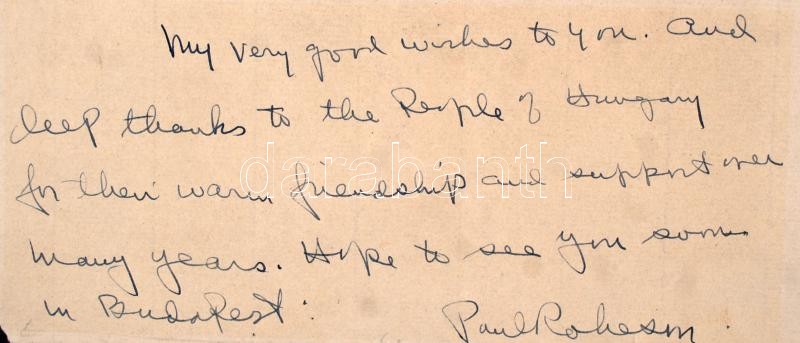 My very good wishes to you. And
deep thanks to the People of Hungary
for their warm friendship and support over
many years. Hope to see you soon
in Budapest.
Paul Robeson.
darabanth